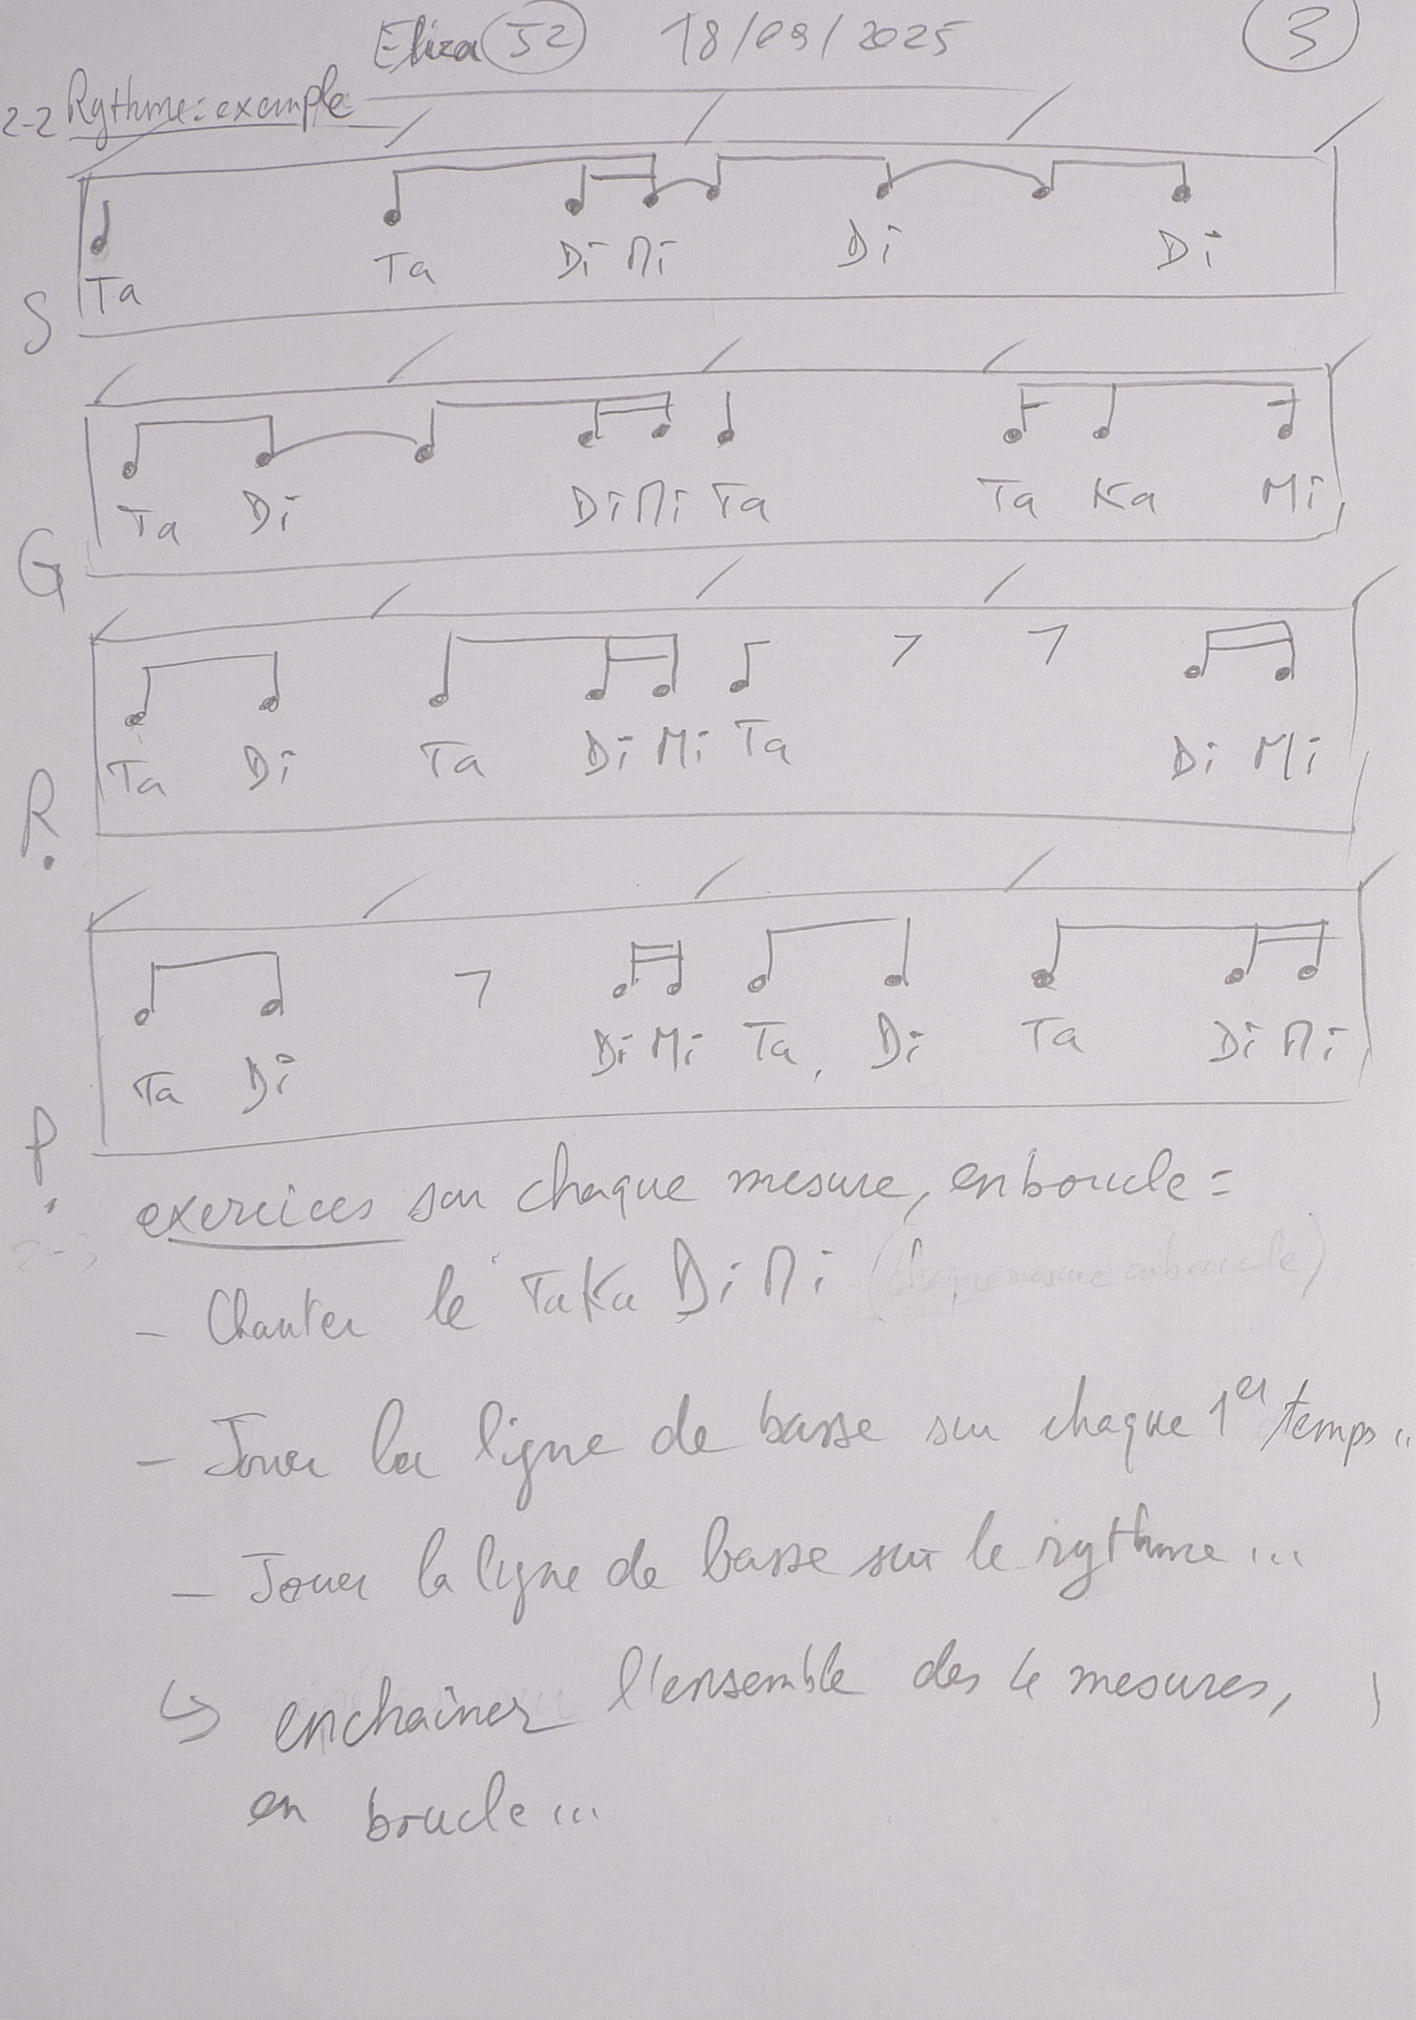 Eliza J2 18/09/2025 3
2-2 Rythme: exemple
Ta Ta Di Mi Di Di
S
Ta Di Di Mi Ta Ta Ka Mi
G
Ta Di Ta Di Mi Ta Di Mi
R.
Ta Di Di Mi Ta, Di Ta Di Mi
P.
exercices sur chaque mesure, en boucle =
2-3
- Chanter le TaKa Di Mi (chaque mesure en boucle)
- Jouer la ligne de basse sur chaque 1er temps..
- Jouer la ligne de basse sur le rythme...
↳ enchaîner l'ensemble des 4 mesures,
en boucle...